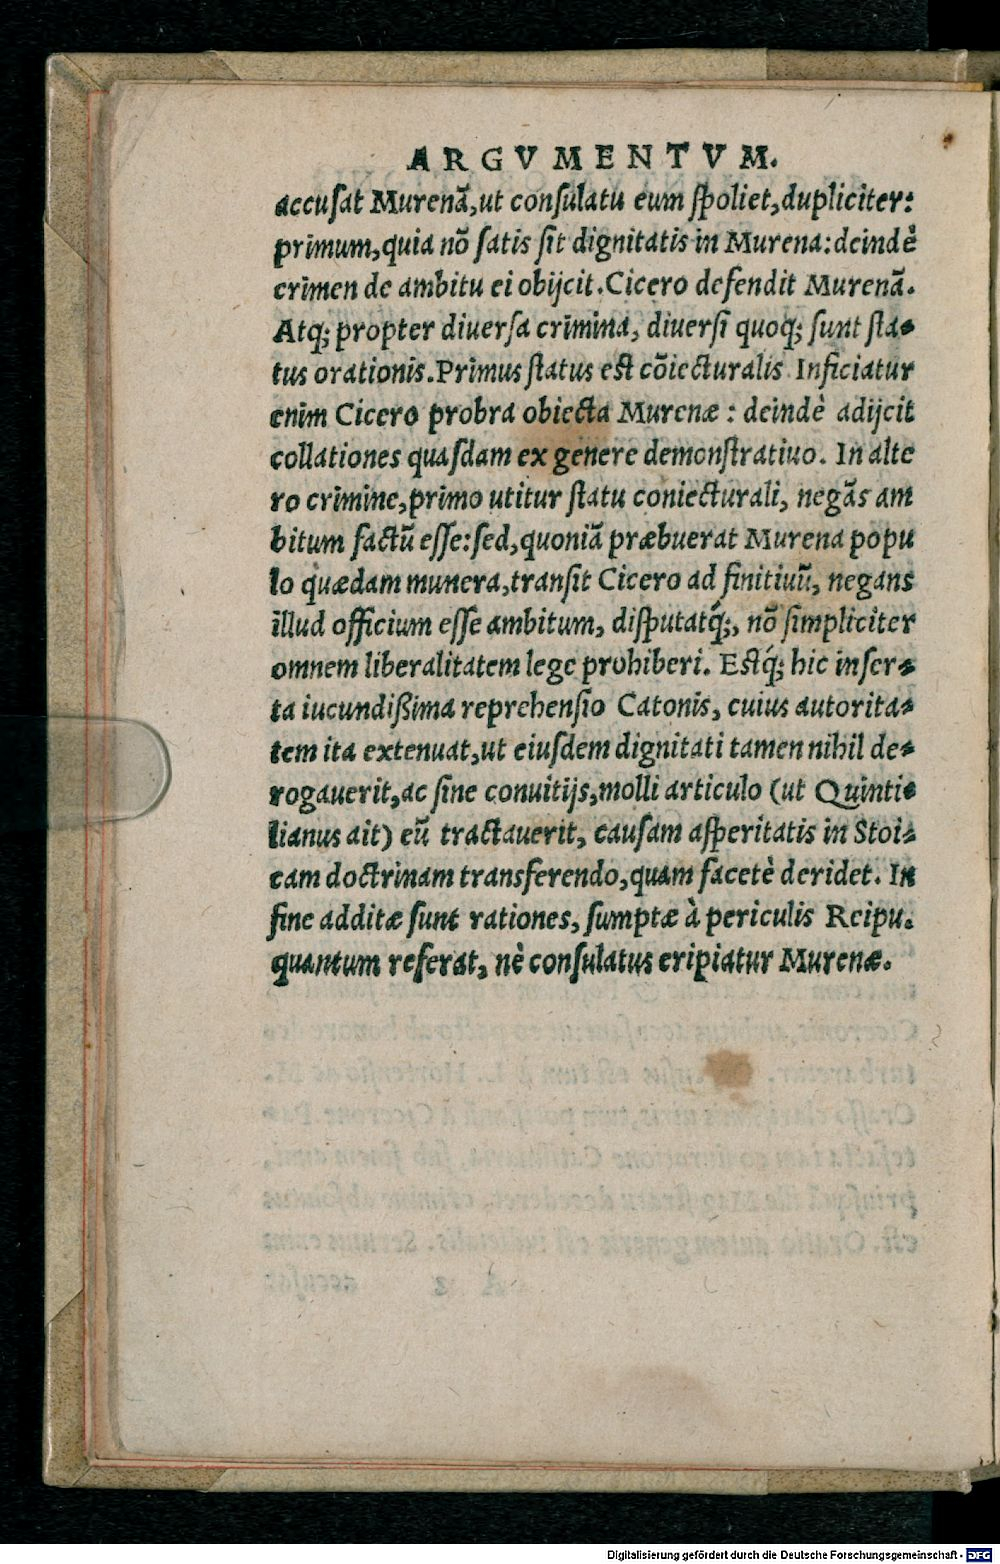 ARGVMENTVM.
accusat Murenã,ut consulatu eum spoliet,dupliciter:
primum,quia nõ satis sit dignitatis in Murena:deindè
crimen de ambitu ei obijcit.Cicero defendit Murenã.
Atq; propter diuersa crimina, diuersi quoq; sunt sta-
tus orationis.Primus status est cõiecturalis Inficiatur
enim Cicero probra obiecta Murenæ : deindè adijcit
collationes quasdam ex genere demonstratiuo. In alte
ro crimine,primo utitur statu coniecturali, negãs am
bitum factũ esse:sed,quoniã præbuerat Murena popu
lo quædam munera,transit Cicero ad finitiuũ, negans
illud officium esse ambitum, disputatq́;, nõ simpliciter
omnem liberalitatem lege prohiberi. Estq́; hic inser-
ta iucundißima reprehensio Catonis, cuius autorita-
tem ita extenuat,ut eiusdem dignitati tamen nihil de-
rogauerit,ac sine conuitijs,molli articulo (ut Quinti-
lianus ait) eũ tractauerit, causam asperitatis in Stoi-
cam doctrinam transferendo,quam facetè deridet. In
fine additæ sunt rationes, sumptæ à periculis Reipu.
quantum referat, nè consulatus eripiatur Murenæ.
Digitalisierung gefördert durch die Deutsche Forschungsgemeinschaft - DFG